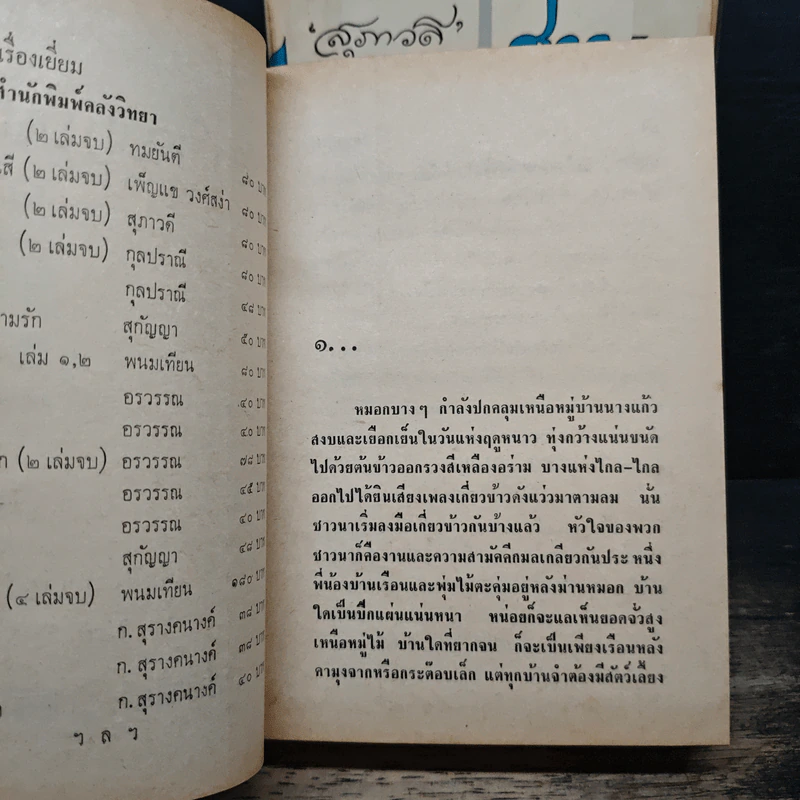 'สุภาวดี'
เรื่องเยี่ยม
สำนักพิมพ์คลังวิทยา
(๒ เล่มจบ) ทมยันตี ๘๐ บาท
(๒ เล่มจบ) เพ็ญแข วงศ์สง่า ๘๐ บาท
(๒ เล่มจบ) สุภาวดี ๘๐ บาท
(๒ เล่มจบ) กุลปราณี ๘๐ บาท
กุลปราณี ๔๘ บาท
ามรัก สุกัญญา ๕๐ บาท
เล่ม ๑,๒ พนมเทียน ๘๐ บาท
อรวรรณ ๔๐ บาท
อรวรรณ ๔๐ บาท
(๒ เล่มจบ) อรวรรณ ๗๘ บาท
อรวรรณ ๔๕ บาท
อรวรรณ ๔๐ บาท
สุกัญญา ๔๘ บาท
(๔ เล่มจบ) พนมเทียน ๑๘๐ บาท
ก. สุรางคนางค์ ๓๘ บาท
ก. สุรางคนางค์ ๓๘ บาท
ก. สุรางคนางค์ ๔๐ บาท
ๆ ล ๆ
๑...
หมอกบาง ๆ กำลังปกคลุมเหนือหมู่บ้านนางแก้ว
สงบและเยือกเย็นในวันแห่งฤดูหนาว ทุ่งกว้างแน่นขนัด
ไปด้วยต้นข้าวออกรวงสีเหลืองอร่าม บางแห่งไกล-ไกล
ออกไปได้ยินเสียงเพลงเกี่ยวข้าวดังแว่วมาตามลม นั้น
ชาวนาเริ่มลงมือเกี่ยวข้าวกันบ้างแล้ว หัวใจของพวก
ชาวนาก็คืองานและความสามัคคีกมลเกลียวกันประ หนึ่ง
พี่น้องบ้านเรือนและพุ่มไม้ตะคุ่มอยู่หลังม่านหมอก บ้าน
ใดเป็นปึกแผ่นแน่นหนา หน่อยก็จะแลเห็นยอดจั่วสูง
เหนือหมู่ไม้ บ้านใดที่ยากจน ก็จะเป็นเพียงเรือนหลัง
คามุงจากหรือกระต๊อบเล็ก แต่ทุกบ้านจำต้องมีสัตว์เลี้ยง